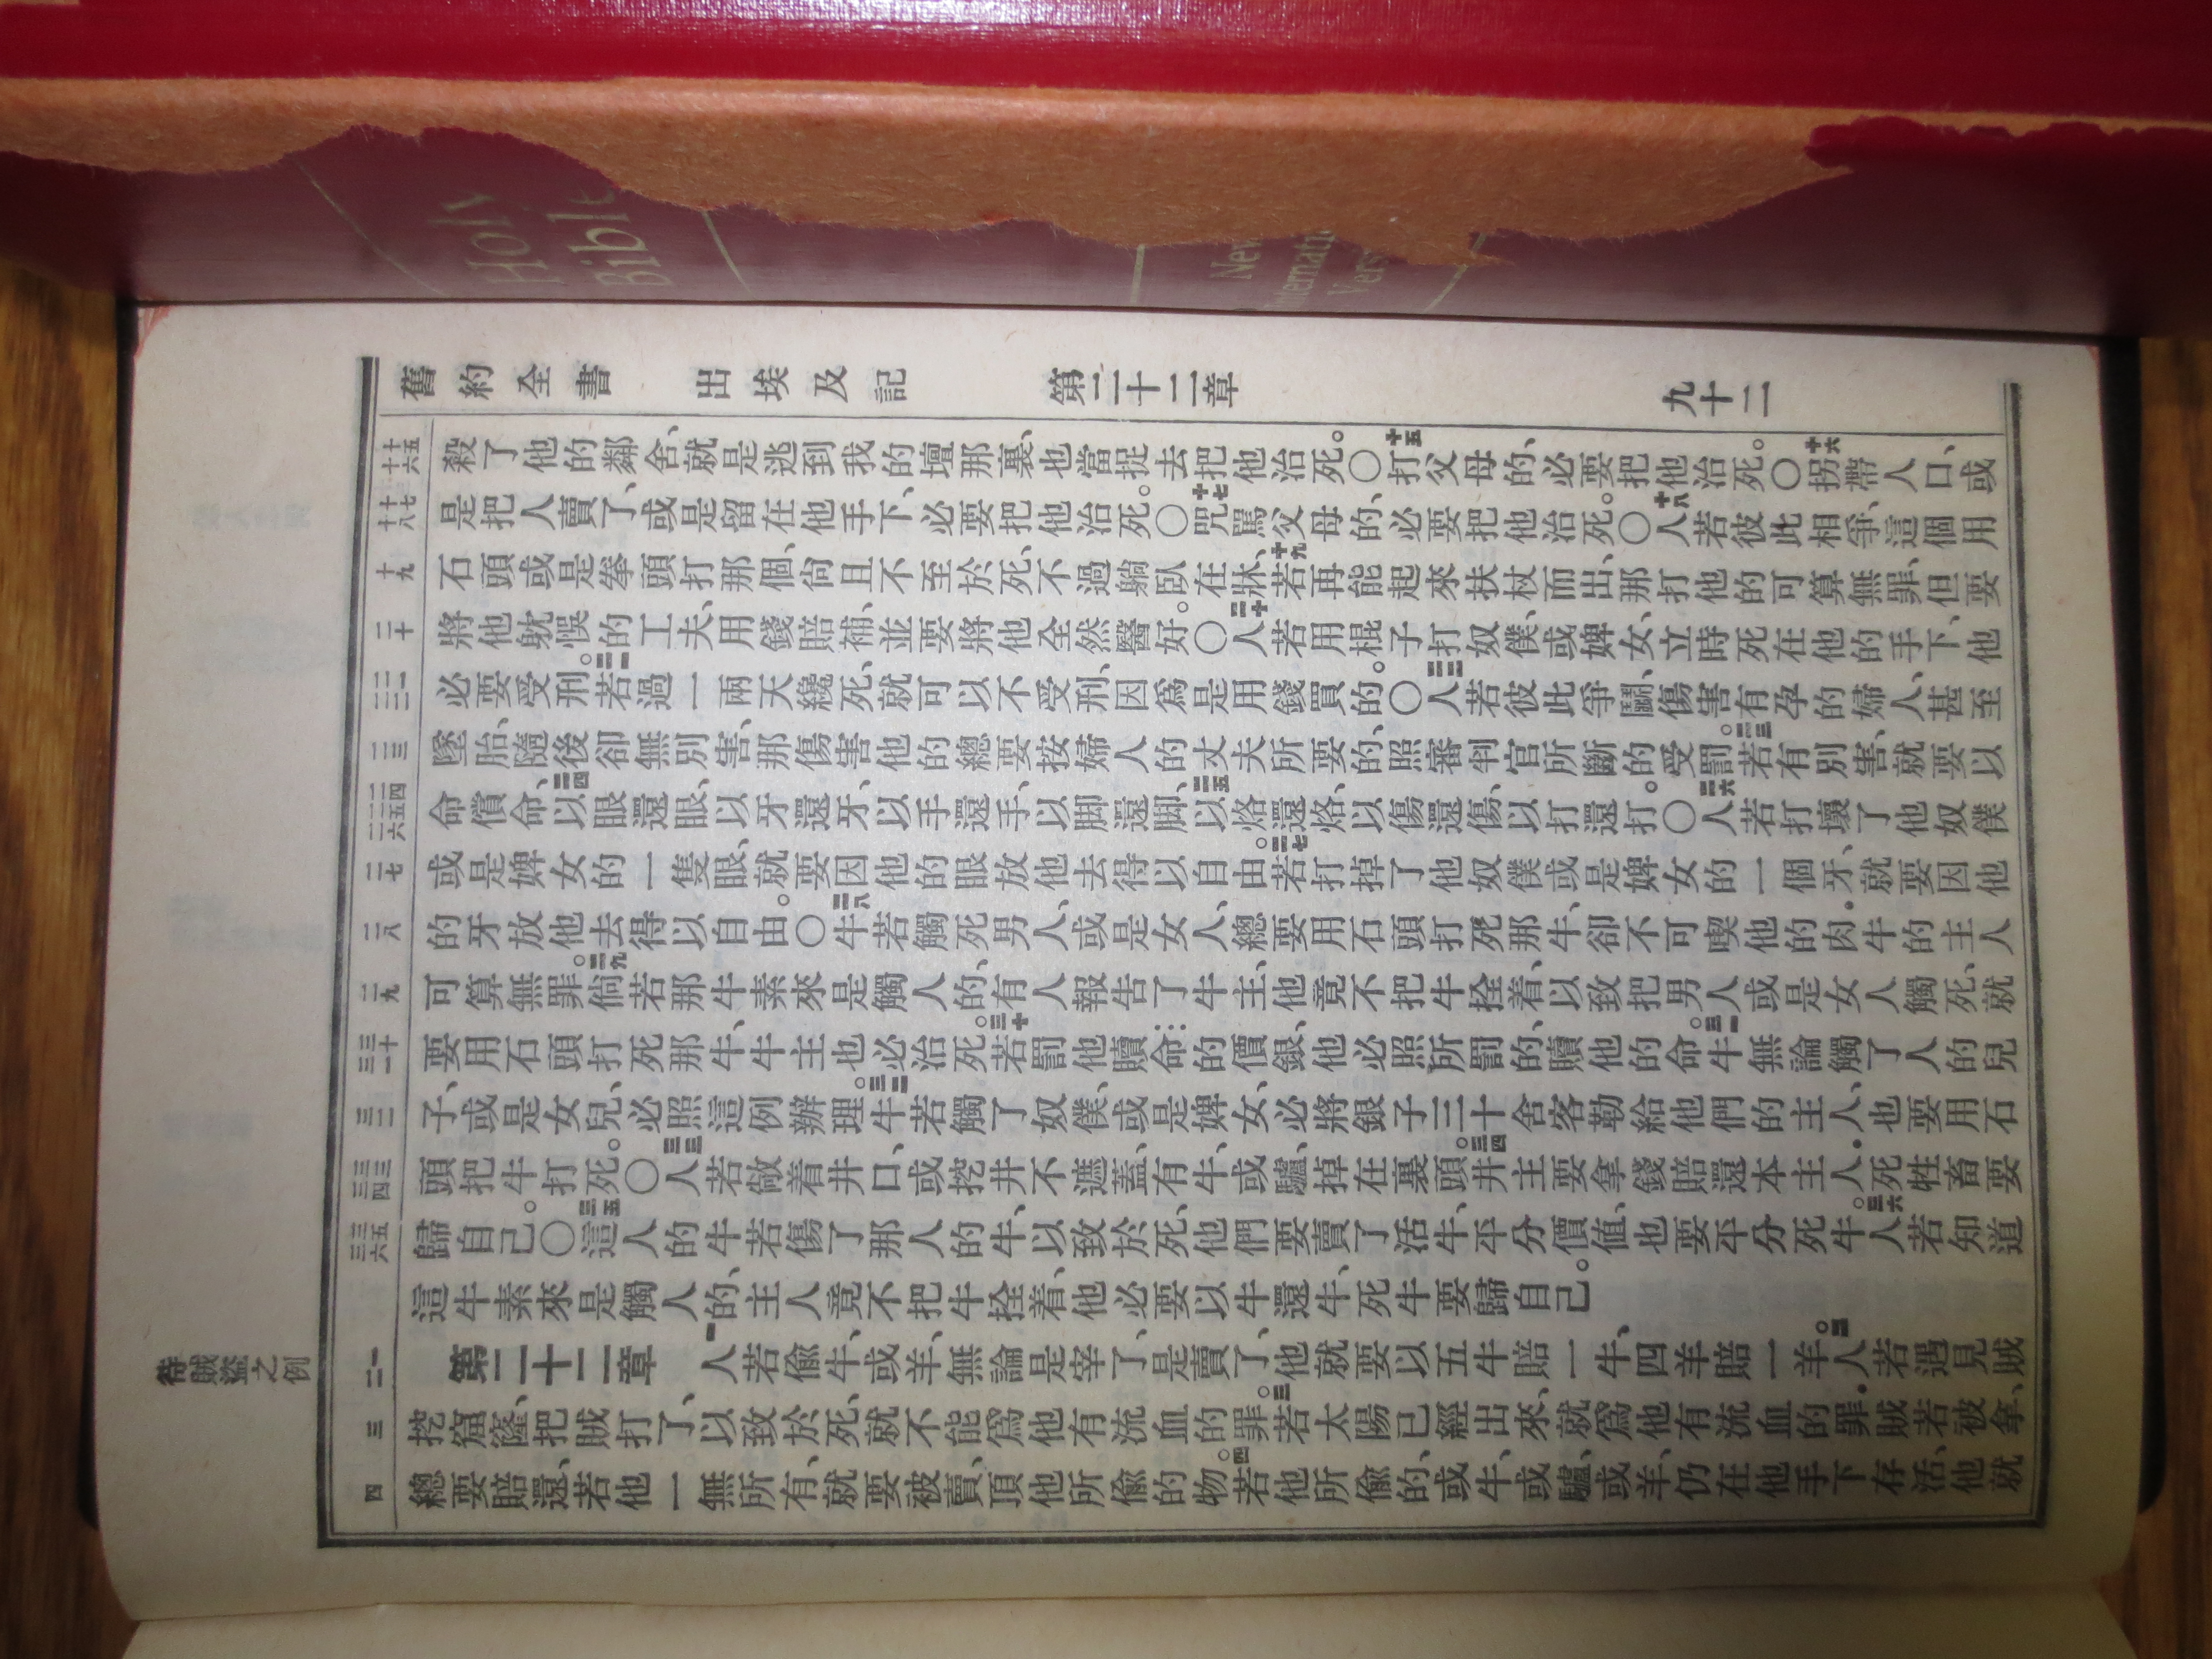 Holy
Bible
New
International
Version
舊約全書 出埃及記 第二十二章 九十二
十五
十六
殺了他的鄰舍、就是逃到我的壇那裏、也當捉去把他治死。〇十五打父母的、必要把他治死。〇十六拐帶人口、或
十七
十八
是把人賣了、或是留在他手下、必要把他治死。〇十七咒罵父母的、必要把他治死。〇十八人若彼此相爭、這個用
十九
石頭或是拳頭打那個、尚且不至於死、不過躺臥在牀、十九若再能起來扶杖而出、那打他的可算無罪、但要
二十
將他躭悞的工夫、用錢賠補、並要將他全然醫好。〇二十人若用棍子打奴僕、或婢女、立時死在他的手下、他
二一
二二
必要受刑。二一若過一兩天纔死、就可以不受刑、因爲是用錢買的。〇二二人若彼此爭鬭、傷害有孕的婦人、甚至
二三
墜胎、隨後卻無別害、那傷害他的總要按婦人的丈夫所要的、照審判官所斷的受罰。二三若有別害、就要以
二四
二五
二六
命償命、二四以眼還眼、以牙還牙、以手還手、以脚還脚、二五以烙還烙、以傷還傷、以打還打。〇二六人若打壞了他奴僕
二七
或是婢女的一隻眼、就要因他的眼放他去得以自由。二七若打掉了他奴僕或是婢女的一個牙、就要因他
二八
的牙放他去得以自由。〇二八牛若觸死男人、或是女人、總要用石頭打死那牛、卻不可喫他的肉．牛的主人
二九
可算無罪。二九倘若那牛素來是觸人的、有人報告了牛主、他竟不把牛拴着、以致把男人或是女人觸死、就
三十
三一
要用石頭打死那牛、牛主也必治死。三十若罰他贖命的價銀、他必照所罰的贖他的命。三一牛無論觸了人的兒
三二
子、或是女兒、必照這例辦理。三二牛若觸了奴僕、或是婢女、必將銀子三十舍客勒給他們的主人、也要用石
三三
三四
頭把牛打死。〇三三人若敞着井口、或挖井不遮蓋、有牛、或驢、掉在裏頭。三四井主要拿錢賠還本主人．死牲畜要
三五
三六
歸自己。〇三五這人的牛若傷了那人的牛、以致於死、他們要賣了活牛、平分價值、也要平分死牛。三六人若知道
這牛素來是觸人的、主人竟不把牛拴着、他必要以牛還牛、死牛要歸自己。
待賊盜之例
一
二
第二十二章 一人若偷牛、或羊、無論是宰了、是賣了、他就要以五牛賠一牛、四羊賠一羊。二人若遇見賊
三
挖窟窿、把賊打了、以致於死、就不能爲他有流血的罪。三若太陽已經出來、就爲他有流血的罪．賊若被拿、
四
總要賠還、若他一無所有、就要被賣、頂他所偷的物。四若他所偷的、或牛、或驢、或羊、仍在他手下存活、他就